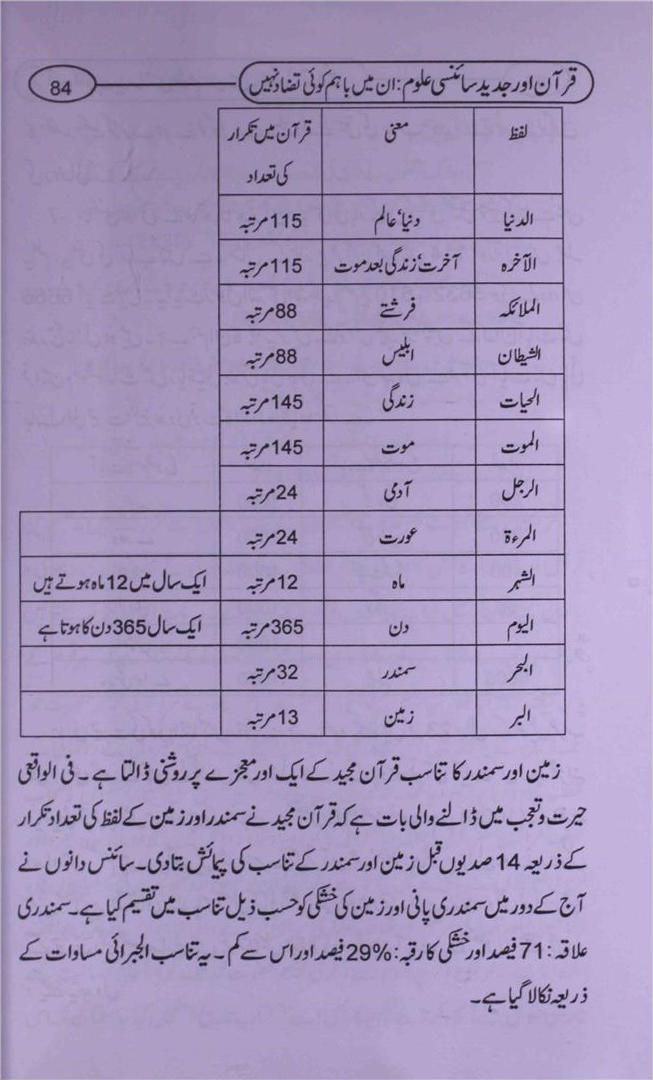 قرآن اور جدید سائنسی علوم: ان میں باہم کوئی تضاد نہیں 84
لفظ معنی قرآن میں تکرار
کی تعداد
الدنیا دنیا، عالم 115 مرتبہ
الآخرہ آخرت، زندگی بعد موت 115 مرتبہ
الملائکہ فرشتے 88 مرتبہ
الشیطان ابلیس 88 مرتبہ
الحیات زندگی 145 مرتبہ
الموت موت 145 مرتبہ
الرجل آدمی 24 مرتبہ
المرءۃ عورت 24 مرتبہ
الشہر ماہ 12 مرتبہ ایک سال میں 12 ماہ ہوتے ہیں
الیوم دن 365 مرتبہ ایک سال 365 دن کا ہوتا ہے
البحر سمندر 32 مرتبہ
البر زمین 13 مرتبہ
زمین اور سمندر کا تناسب قرآن مجید کے ایک اور معجزے پر روشنی ڈالتا ہے۔ فی الواقعی
حیرت و تعجب میں ڈالنے والی بات ہے کہ قرآن مجید نے سمندر اور زمین کے لفظ کی تعداد تکرار
کے ذریعہ 14 صدیوں قبل زمین اور سمندر کے تناسب کی پیمائش بتا دی۔ سائنس دانوں نے
آج کے دور میں سمندری پانی اور زمین کی خشکی کو حسب ذیل تناسب میں تقسیم کیا ہے۔ سمندری
علاقہ: 71 فیصد اور خشکی کا رقبہ: %29 فیصد اور اس سے کم۔ یہ تناسب الجبرائی مساوات کے
ذریعہ نکالا گیا ہے۔